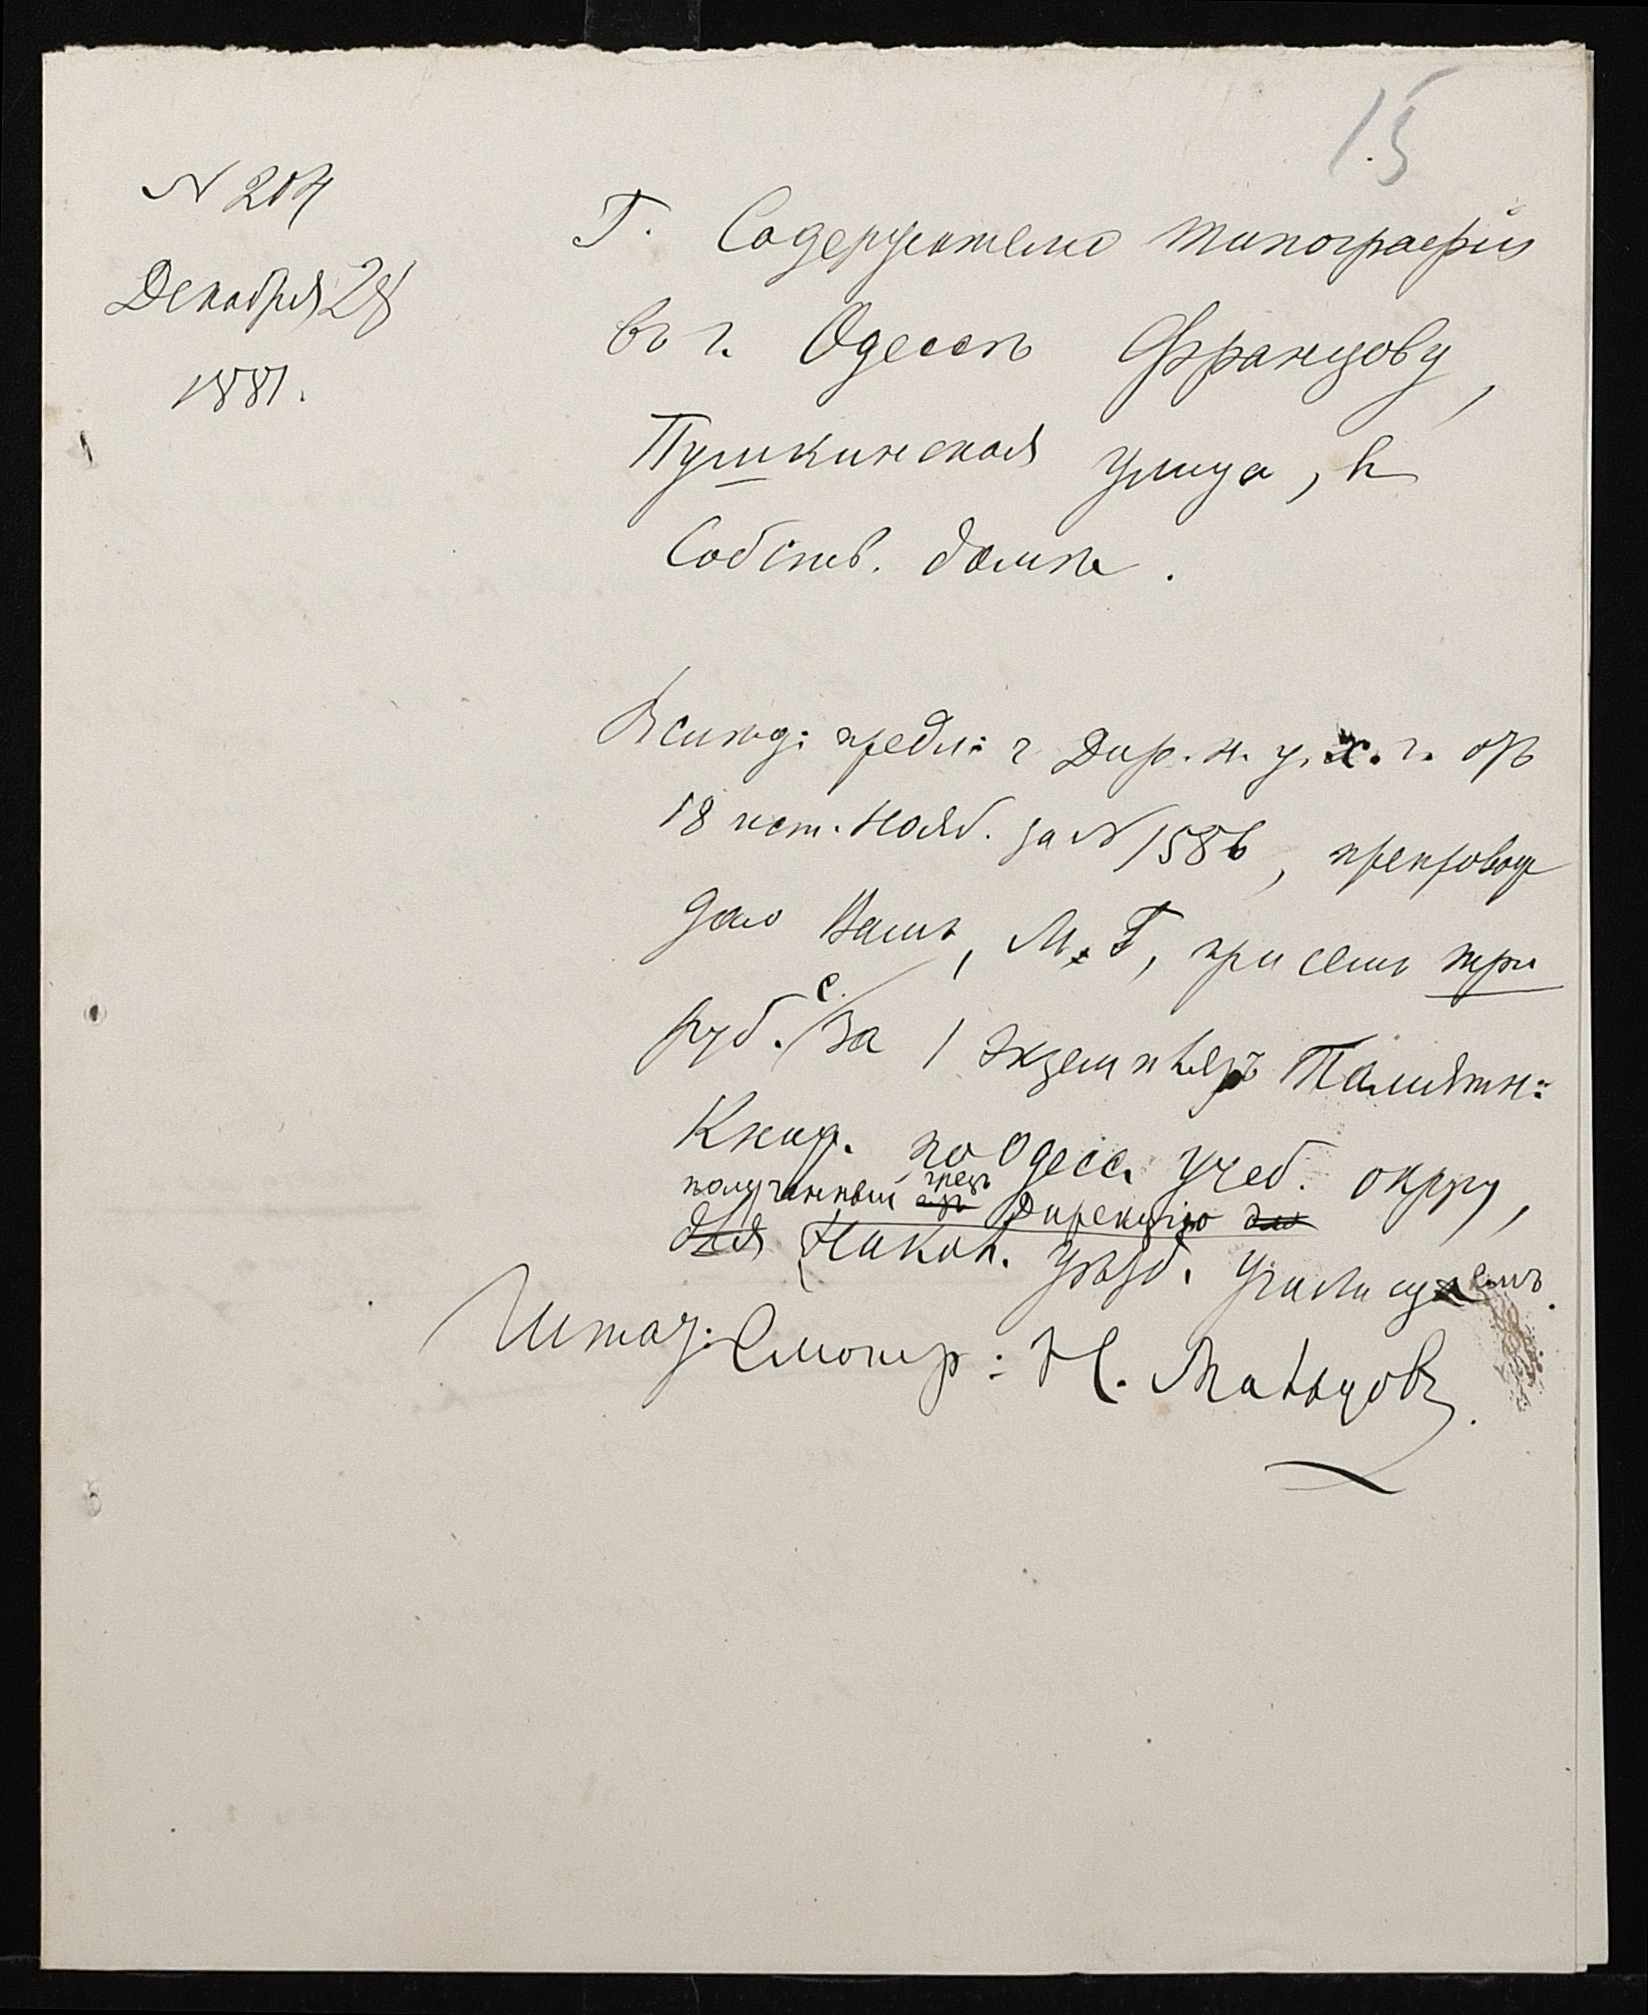 15
N 204
Декабря 28
1881.
Г. Содержателю типографіи
въ г. Одессѣ Францову,
Пушкинская улица, в
Собств. домѣ.
Вслѣд: предл: г Дир. н. у. х. г. отъ
18 ист. Нояб. за N 1586, препровож
даю Вамъ, М. Г, при семъ три
руб. с. за 1 экземпляръ Памятн:
Книж. по Одесс. Учеб. округу,
полученный чрезъ Дирекцію для
для Никол. уѣзд. училищемъ.
Штат: Смотр: Н. Мальцовъ.